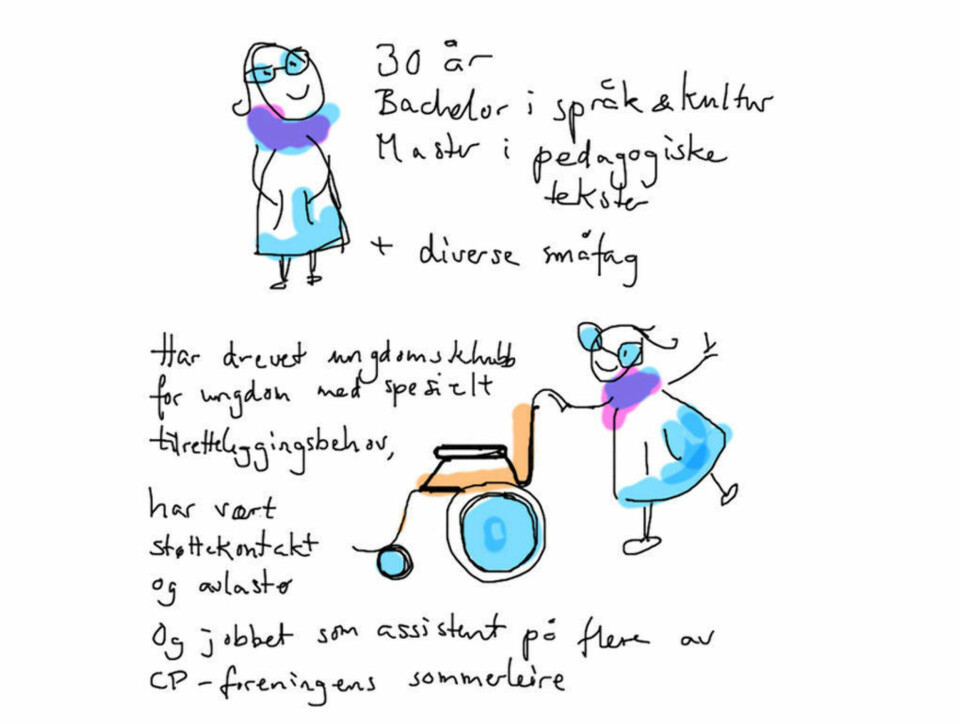 30 år
Bachelor i språk & kultur
Master i pedagogiske
tekster
+ diverse småfag
Har drevet ungdomsklubb
for ungdom med spesielt
tilretteleggingsbehov,
har vært
støttekontakt
og avlastø
Og jobbet som assistent på flere av
CP-foreningens sommerleire